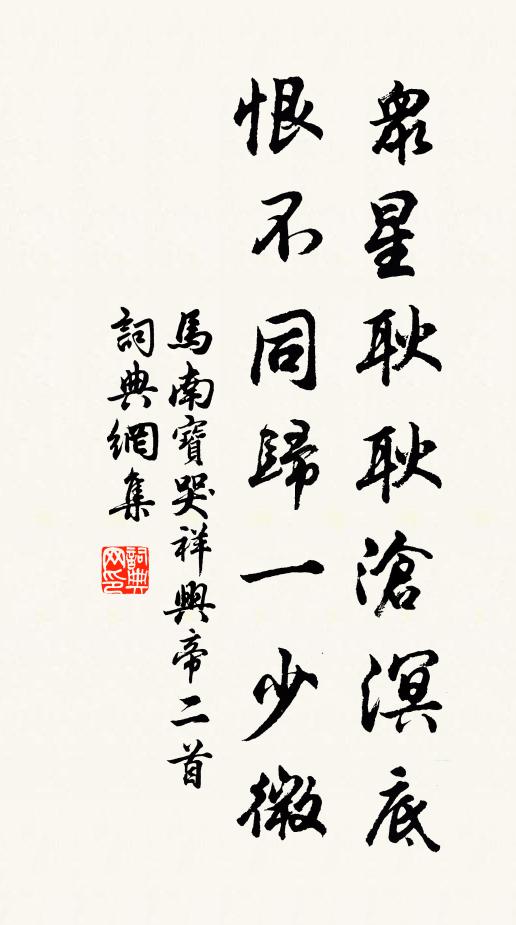 眾星耿耿滄溟底
恨不同歸一少微
馬南寶哭祥興帝二首
詞典網集
詞典網印